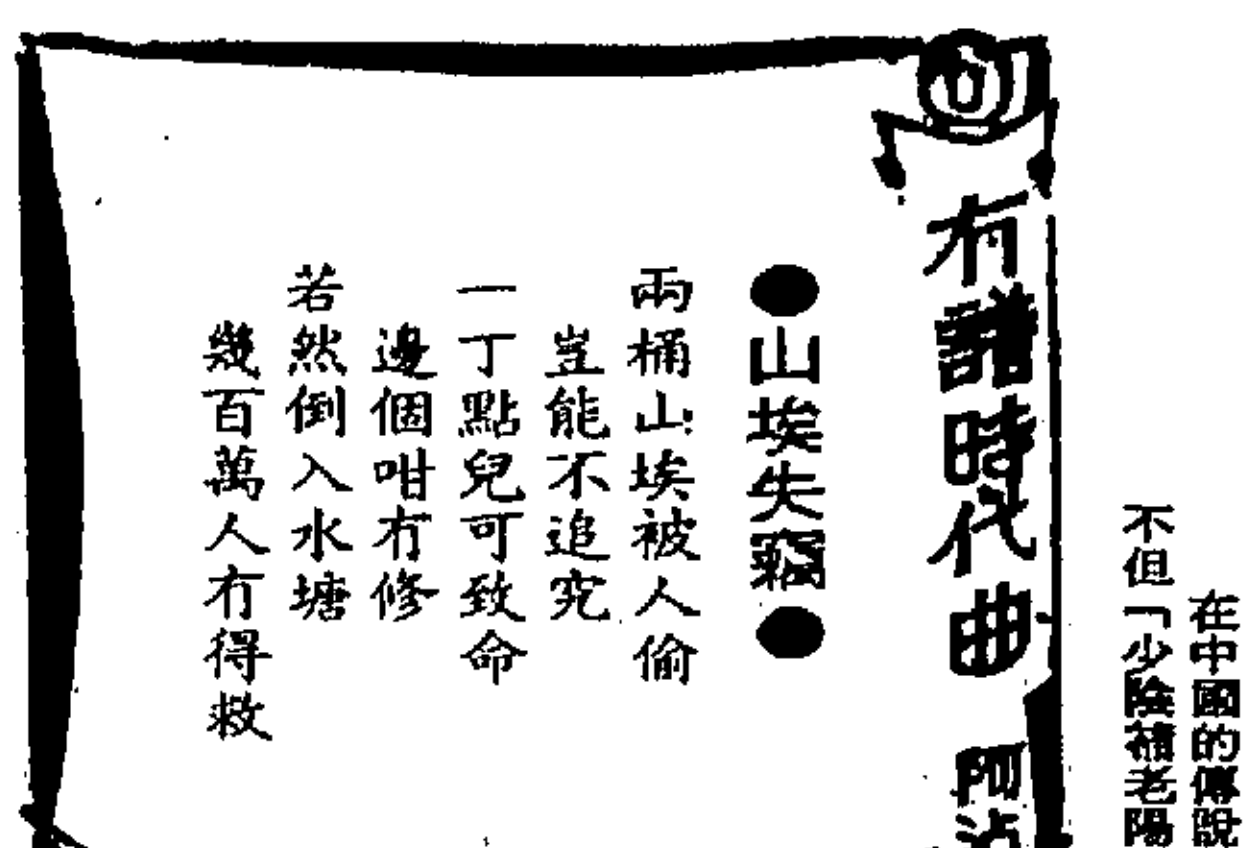 在中國的傳說
不但「少陰補老陽
冇譜時代曲
●山埃失竊●
兩桶山埃被人偷
豈能不追究
一丁點兒可致命
邊個咁冇修
若然倒入水塘
幾百萬人冇得救